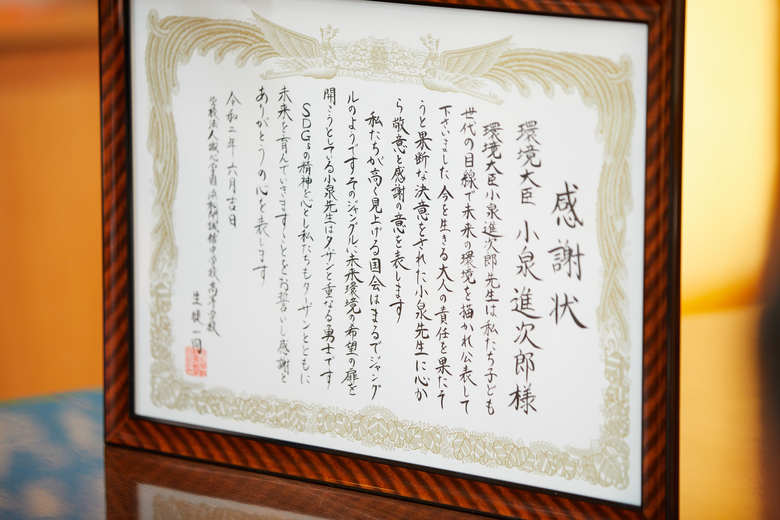 感謝状
環境大臣 小泉 進次郎 様
環境大臣小泉進次郎先生は私たち子ども
世代の目線で未来の環境を描かれ公表して
下さいました 今を生きる大人の責任を果たそ
うと果断な決意をされた小泉先生に心か
ら敬意と感謝の意を表します
私たちが高く見上げる国会はまるでジャング
ルのようですそのジャングルに未来環境の希望の扉を
開こうとしている小泉先生はターザンと重なる勇士です
SDGsの精神を心とし私たちもターザンとともに
未来を育んでいきますことをお誓いし感謝と
ありがとうの心を表します
令和二年六月吉日
学校法人誠心学園 浜松開誠館中学校・高等学校
生徒一同